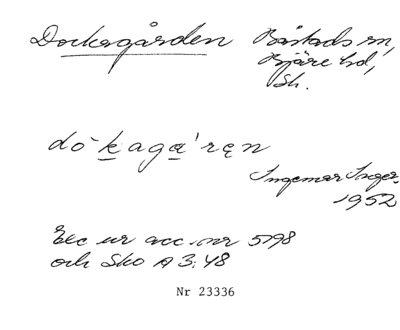 Dockagården Båstads sn,
Bjäre hd,
Sk.
dò-kaga'ren
Ingemar Inger.
1952
Exc ur acc. nr 5798
och Sko A 3:48
Nr 23336